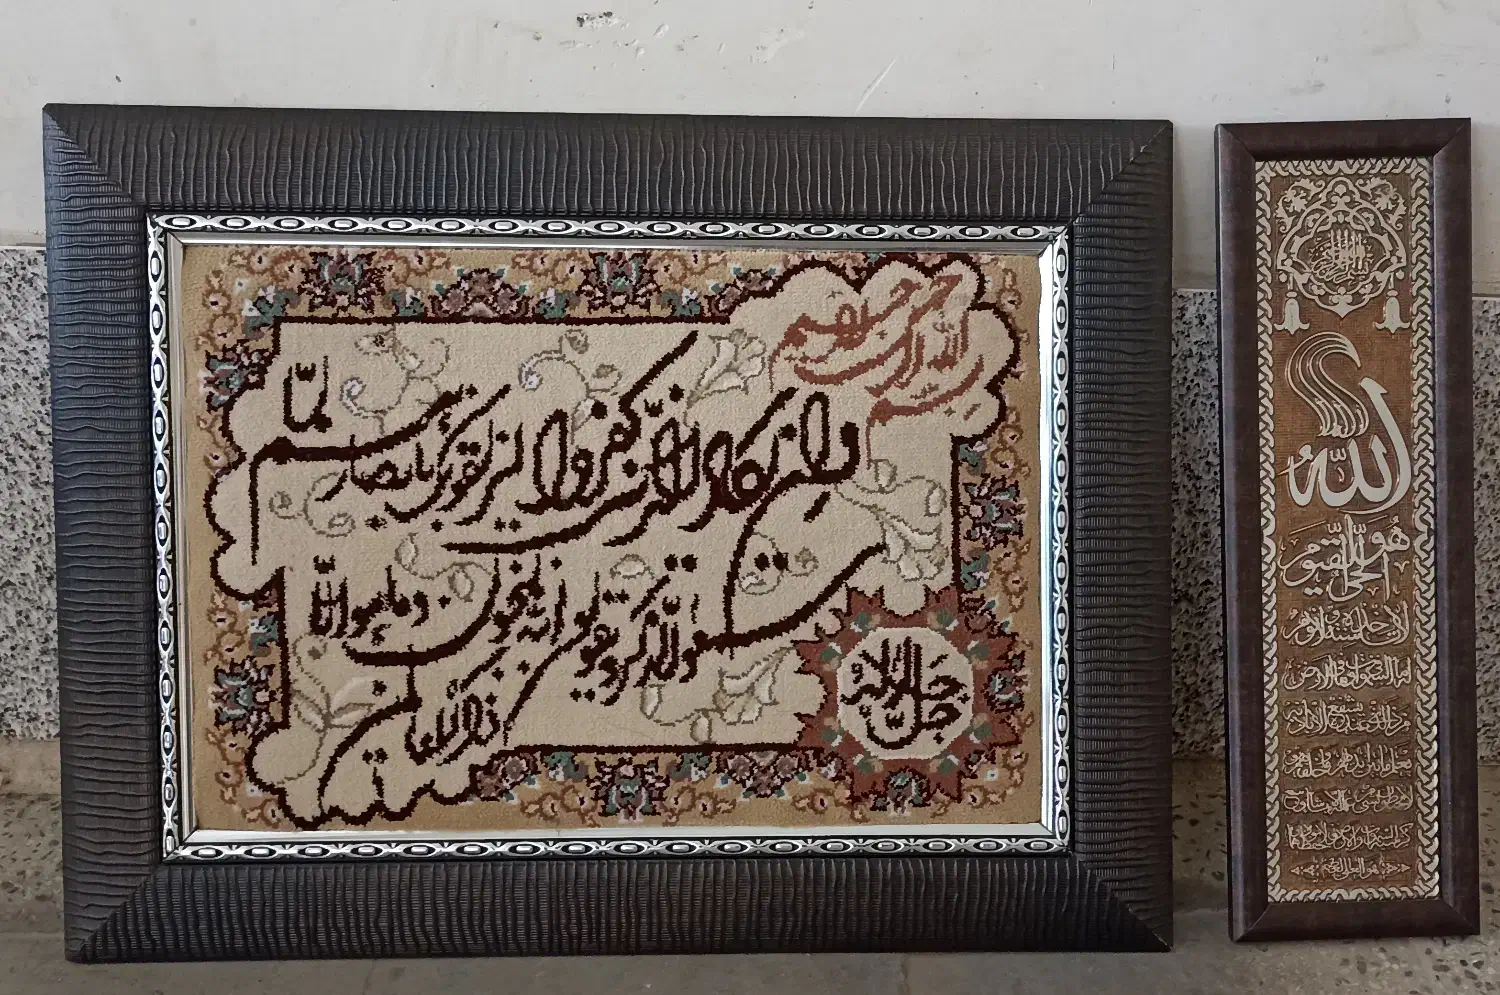 بسم الله الرحمن الرحیم
وان یکاد الذین کفروا لیزلقونک بابصارهم لمّا
سمعوا الذکر و یقولون انه لمجنون و ما هو الّا
ذکر للعالمین
جل جلاله
الله
هو الحی القیوم
لا تأخذه سنة و لا نوم
له ما فی السموات و ما فی الارض
من ذا الذی یشفع عنده الا باذنه
یعلم ما بین ایدیهم و ما خلفهم و
لا یحیطون بشیء من علمه الا بما شاء وسع
کرسیه السموات و الارض و لا یؤده حفظهما
و هو العلی العظیم